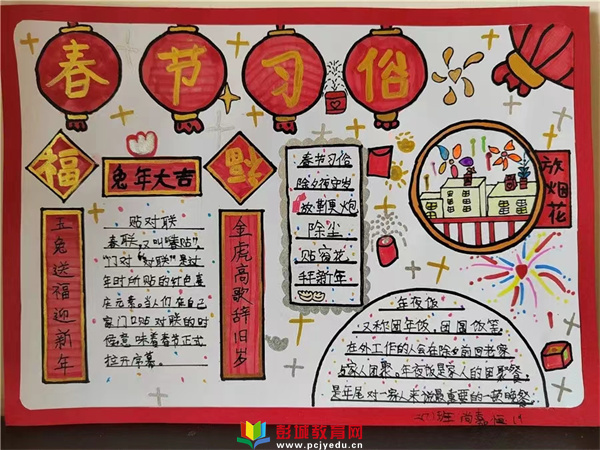 春节习俗
福
兔年大吉
玉兔送福迎新年
贴对联
春联,又叫"春贴",
"门对""对联"是过
年时所贴的红色喜
庆元素,当人们在自己
家门口贴对联的时
候,意味着春节正式
拉开序幕。
金虎高歌辞旧岁
春节习俗
除夕夜守岁
放鞭炮
除尘
贴窗花
拜新年
放烟花
年夜饭
又称团年饭、团圆饭等,
在外工作的人会在除夕前回老家
与家人团聚,年夜饭是家人的团聚餐,
是年尾对一家人来说最重要的一顿晚餐.
彭城教育网
www.pcjyedu.cn